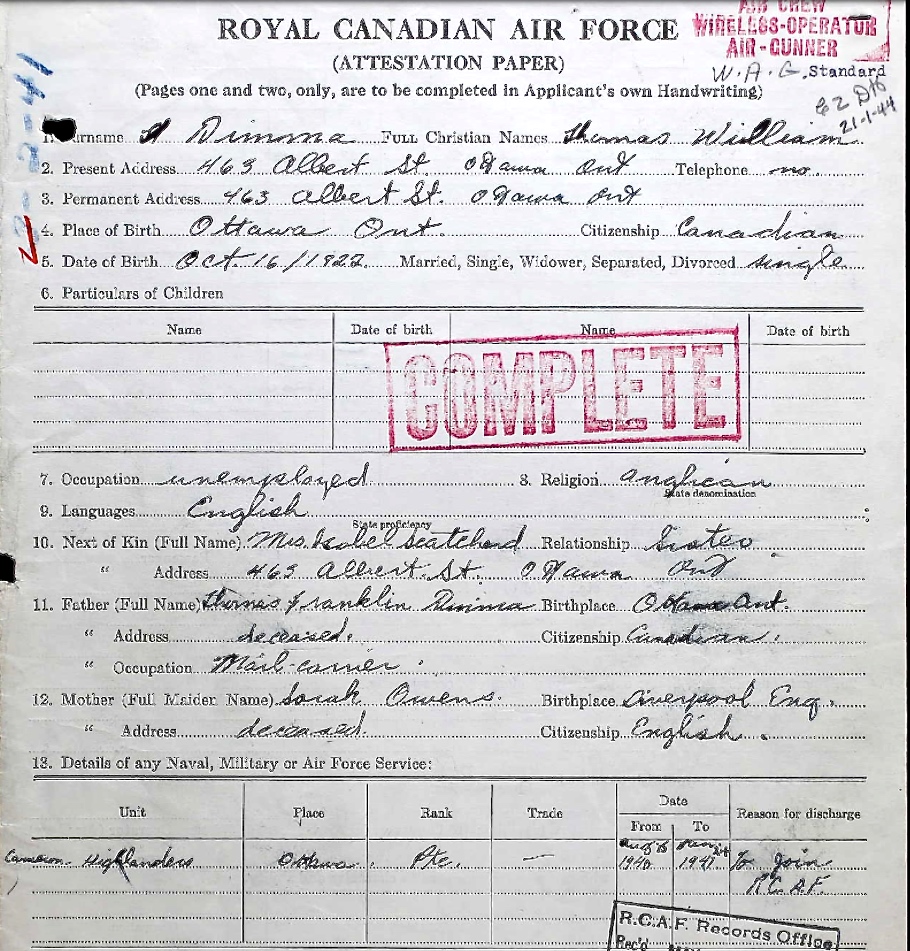 AIR CREW
WIRELESS-OPERATOR
AIR-GUNNER
ROYAL CANADIAN AIR FORCE
(ATTESTATION PAPER)
W.A.G. Standard
(Pages one and two, only, are to be completed in Applicant's own Handwriting)
21-1-44
2-41
1. Surname Dimma FULL Christian Names Thomas William
2. Present Address 463 Albert St. Ottawa Ont Telephone no.
3. Permanent Address 463 Albert St. Ottawa Ont
4. Place of Birth Ottawa Ont. Citizenship Canadian
5. Date of Birth Oct. 16/1922 Married, Single, Widower, Separated, Divorced single
6. Particulars of Children
Name Date of birth Name Date of birth
COMPLETE
7. Occupation unemployed 8. Religion Anglican
State denomination
9. Languages English
State proficiency
10. Next of Kin (Full Name) Mrs. Isobel Relationship Sister
" Address 463 Albert St. Ottawa Ont
11. Father (Full Name) Thomas Franklin Dimma Birthplace Ottawa Ont.
" Address deceased. Citizenship Canadian.
" Occupation Mail-carrier.
12. Mother (Full Maiden Name) Sarah Owens. Birthplace Liverpool Eng.
" Address deceased. Citizenship English.
13. Details of any Naval, Military or Air Force Service:
Unit Place Rank Trade Date Reason for discharge
From To
Cameron Highlanders Ottawa. Pte. — Aug 1940 1941 To join
R.C.A.F.
R.C.A.F. Records Office
Rec'd